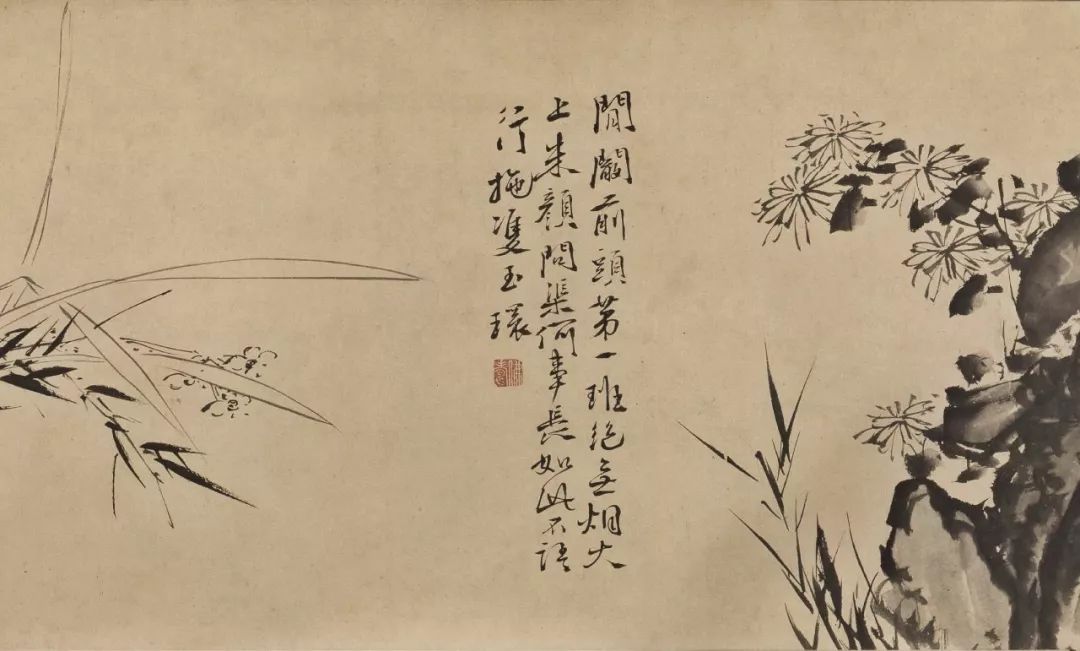 閶闔前頭第一班絕無烟火
上朱顏問渠何事長如此不語
行拖雙玉環
佛壽